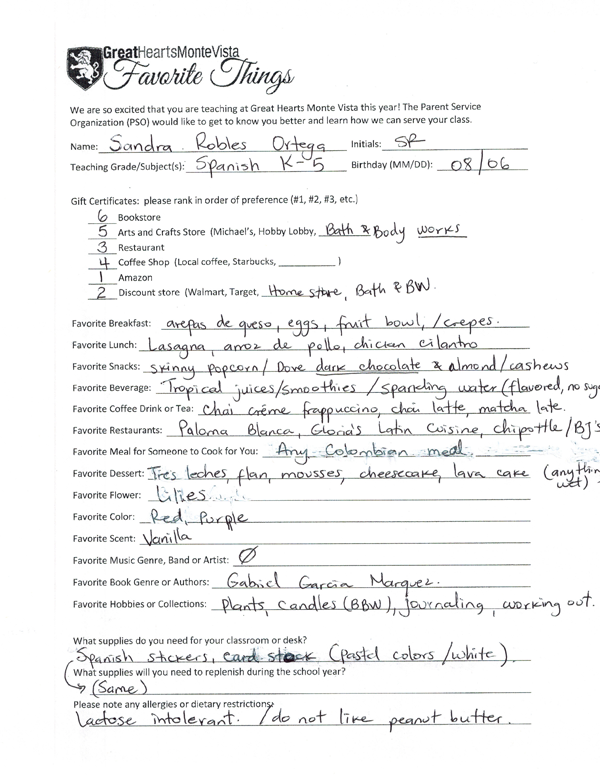 GreatHeartsMonteVista
Favorite Things
We are so excited that you are teaching at Great Hearts Monte Vista this year! The Parent Service
Organization (PSO) would like to get to know you better and learn how we can serve your class.
Name: Sandra Robles Ortega Initials: SR
Teaching Grade/Subject(s): Spanish K-5 Birthday (MM/DD): 08/06
Gift Certificates: please rank in order of preference (#1, #2, #3, etc.)
6 Bookstore
5 Arts and Crafts Store (Michael's, Hobby Lobby, Bath & Body works
3 Restaurant
4 Coffee Shop (Local coffee, Starbucks, __________ )
1 Amazon
2 Discount store (Walmart, Target, Home store, Bath & BW.
Favorite Breakfast: arepas de queso, eggs, fruit bowl, /crepes.
Favorite Lunch: Lasagna, arroz de pollo, chicken cilantro
Favorite Snacks: skinny popcorn/ Dove dark chocolate & almond/cashews
Favorite Beverage: Tropical juices/smoothies /sparkling water (flavored, no suga
Favorite Coffee Drink or Tea: Chai crème frappuccino, chai latte, matcha late.
Favorite Restaurants: Paloma Blanca, Gloria's Latin Cuisine, chipottle/BJ's
Favorite Meal for Someone to Cook for You: Any Colombian meal.
Favorite Dessert: Tres leches, flan, mousses, cheesecake, lava cake (anythin
wet)
Favorite Flower: Lilies
Favorite Color: Red, Purple
Favorite Scent: Vanilla
Favorite Music Genre, Band or Artist: Ø
Favorite Book Genre or Authors: Gabriel Garcia Marquez.
Favorite Hobbies or Collections: Plants, Candles (BBW), journaling, working out.
What supplies do you need for your classroom or desk?
Spanish stickers, card stock (Pastel colors /white).
What supplies will you need to replenish during the school year?
(Same)
Please note any allergies or dietary restrictions:
Lactose intolerant. /do not like peanut butter.